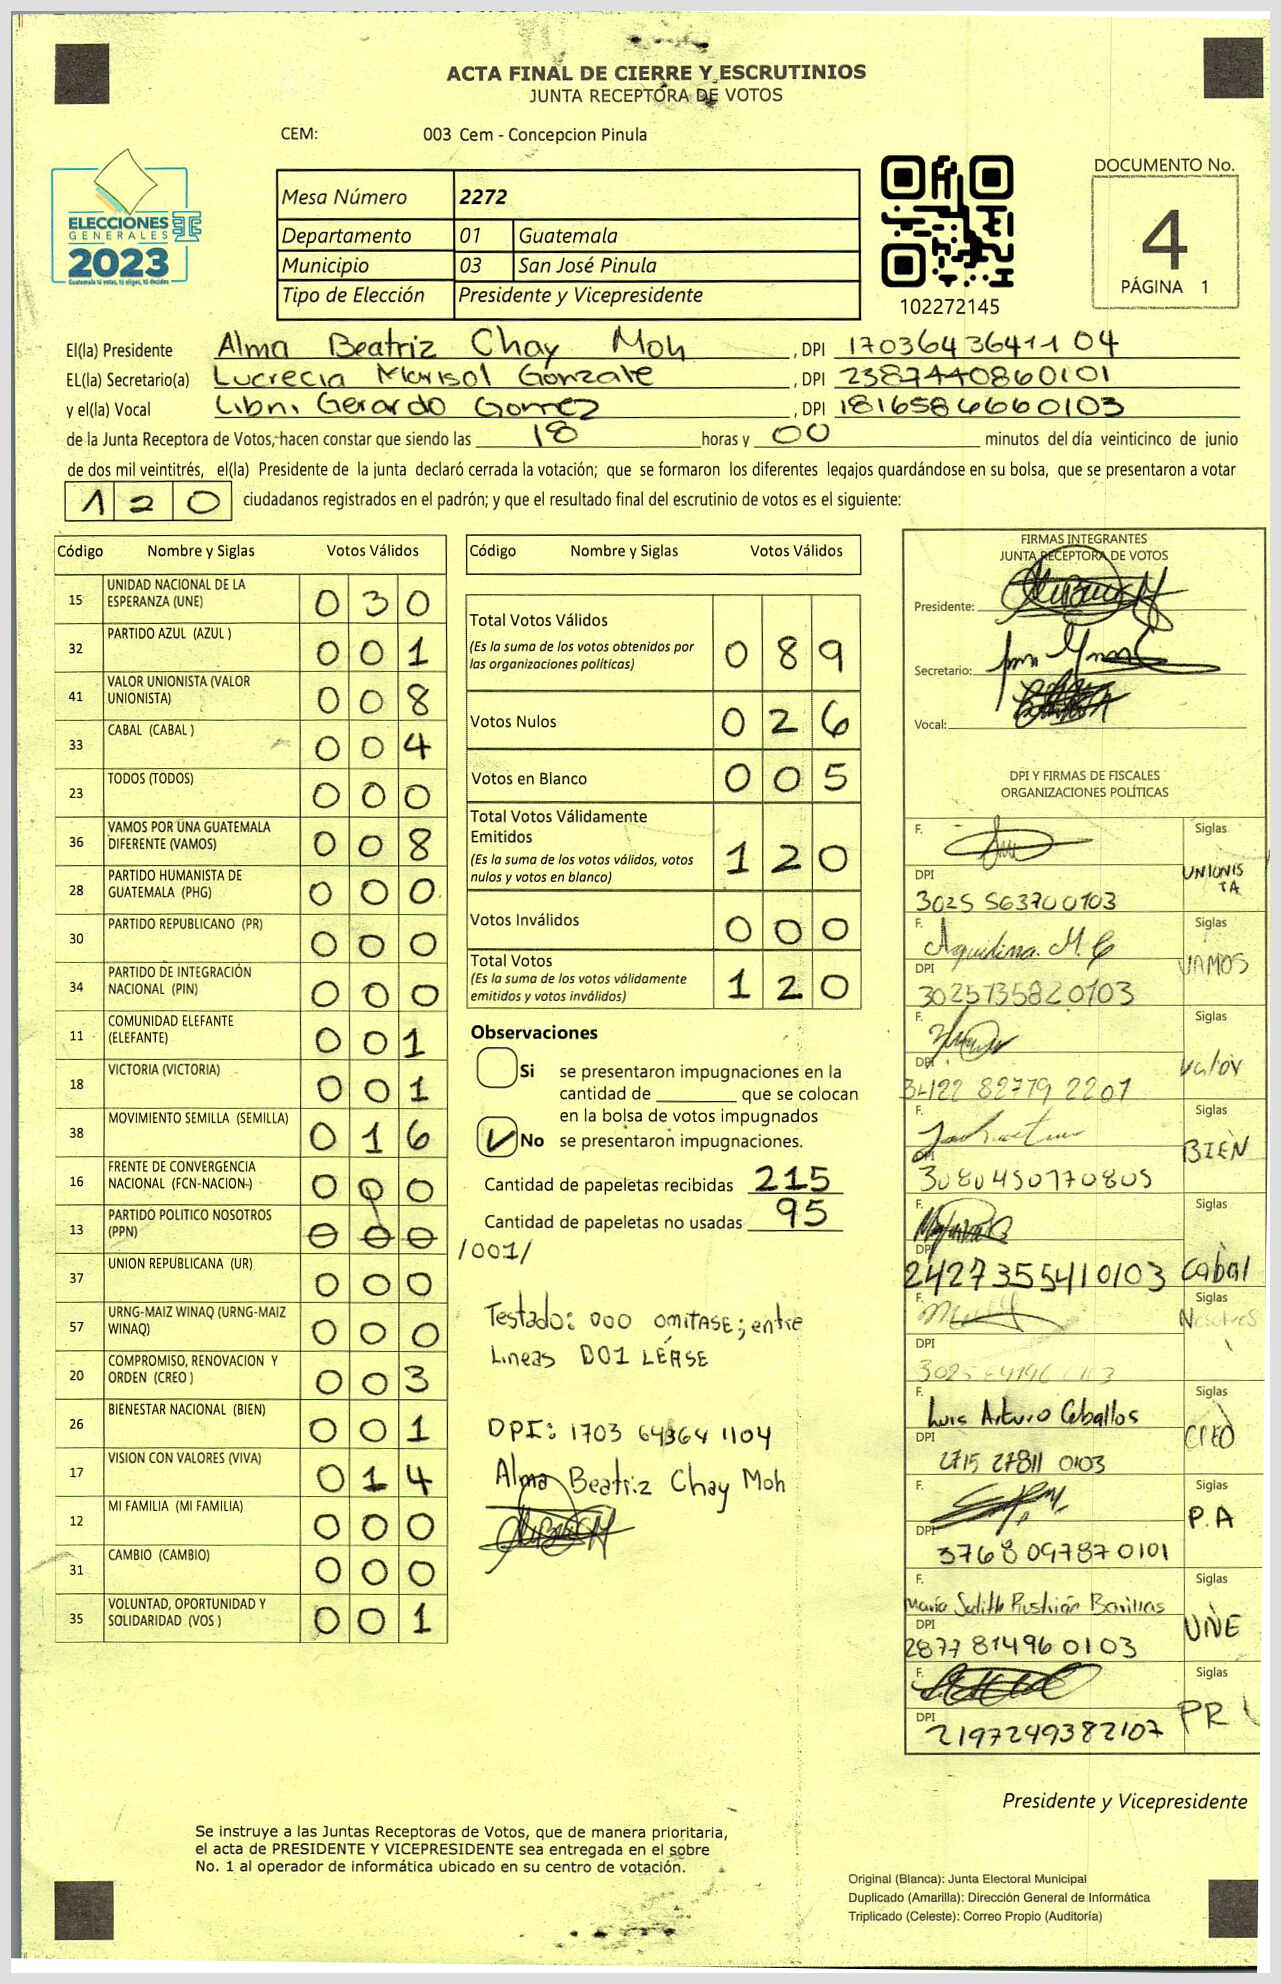 ACTA FINAL DE CIERRE Y ESCRUTINIOS
JUNTA RECEPTORA DE VOTOS
CEM: 003 Cem - Concepcion Pinula
ELECCIONES
GENERALES
2023
Guatemala tú votas, tú eliges, tú decides
Mesa Número 2272
Departamento 01 Guatemala
Municipio 03 San José Pinula
Tipo de Elección Presidente y Vicepresidente
102272145
DOCUMENTO No.
4
PÁGINA 1
El(la) Presidente Alma Beatriz Chay Moh , DPI 1703643641104
EL(la) Secretario(a) Lucrecia Marisol Gonzale , DPI 2387440860101
y el(la) Vocal Libni Gerardo Gomez , DPI 1816584660103
de la Junta Receptora de Votos, hacen constar que siendo las 18 horas y 00 minutos del día veinticinco de junio
de dos mil veintitrés, el(la) Presidente de la junta declaró cerrada la votación; que se formaron los diferentes legajos guardándose en su bolsa, que se presentaron a votar
120 ciudadanos registrados en el padrón; y que el resultado final del escrutinio de votos es el siguiente:
Código Nombre y Siglas Votos Válidos
15 UNIDAD NACIONAL DE LA ESPERANZA (UNE) 030
32 PARTIDO AZUL (AZUL ) 001
41 VALOR UNIONISTA (VALOR UNIONISTA) 008
33 CABAL (CABAL ) 004
23 TODOS (TODOS) 000
36 VAMOS POR UNA GUATEMALA DIFERENTE (VAMOS) 008
28 PARTIDO HUMANISTA DE GUATEMALA (PHG) 000
30 PARTIDO REPUBLICANO (PR) 000
34 PARTIDO DE INTEGRACIÓN NACIONAL (PIN) 000
11 COMUNIDAD ELEFANTE (ELEFANTE) 001
18 VICTORIA (VICTORIA) 001
38 MOVIMIENTO SEMILLA (SEMILLA) 016
16 FRENTE DE CONVERGENCIA NACIONAL (FCN-NACION-) 000
13 PARTIDO POLITICO NOSOTROS (PPN) 000 /001/
37 UNION REPUBLICANA (UR) 000
57 URNG-MAIZ WINAQ (URNG-MAIZ WINAQ) 000
20 COMPROMISO, RENOVACION Y ORDEN (CREO ) 003
26 BIENESTAR NACIONAL (BIEN) 001
17 VISION CON VALORES (VIVA) 014
12 MI FAMILIA (MI FAMILIA) 000
31 CAMBIO (CAMBIO) 000
35 VOLUNTAD, OPORTUNIDAD Y SOLIDARIDAD (VOS ) 001
Código Nombre y Siglas Votos Válidos
Total Votos Válidos 089
(Es la suma de los votos obtenidos por
las organizaciones políticas)
Votos Nulos 026
Votos en Blanco 005
Total Votos Válidamente
Emitidos 120
(Es la suma de los votos válidos, votos
nulos y votos en blanco)
Votos Inválidos 000
Total Votos 120
(Es la suma de los votos válidamente
emitidos y votos inválidos)
Observaciones
Si se presentaron impugnaciones en la
cantidad de ________ que se colocan
en la bolsa de votos impugnados
No se presentaron impugnaciones.
Cantidad de papeletas recibidas 215
Cantidad de papeletas no usadas 95
Testado: 000 OMITASE; entre
Lineas 001 LÉASE
DPI: 1703 64364 1104
Alma Beatriz Chay Moh
FIRMAS INTEGRANTES
JUNTA RECEPTORA DE VOTOS
Presidente:
Secretario:
Vocal:
DPI Y FIRMAS DE FISCALES
ORGANIZACIONES POLÍTICAS
F. Siglas
DPI UNIONISTA
3025 563700103
F. Aquilina. M. C Siglas
DPI VAMOS
3025735820103
F. Siglas
DPI Valor
3422 82779 2201
F. Siglas
DPI BIEN
3080450770805
F. Siglas
DPI
2427355410103 Cabal
F. Siglas
Nosotros
DPI
F. Luis Arturo Ceballos Siglas
DPI CREO
2715 27811 0103
F. Siglas
DPI P.A
3768097870101
F. María Judith Rustrián Barillas Siglas
DPI UNE
2877814960103
F. Siglas
DPI PR
2197249382107
Presidente y Vicepresidente
Se instruye a las Juntas Receptoras de Votos, que de manera prioritaria,
el acta de PRESIDENTE Y VICEPRESIDENTE sea entregada en el sobre
No. 1 al operador de informática ubicado en su centro de votación.
Original (Blanca): Junta Electoral Municipal
Duplicado (Amarilla): Dirección General de Informática
Triplicado (Celeste): Correo Propio (Auditoría)